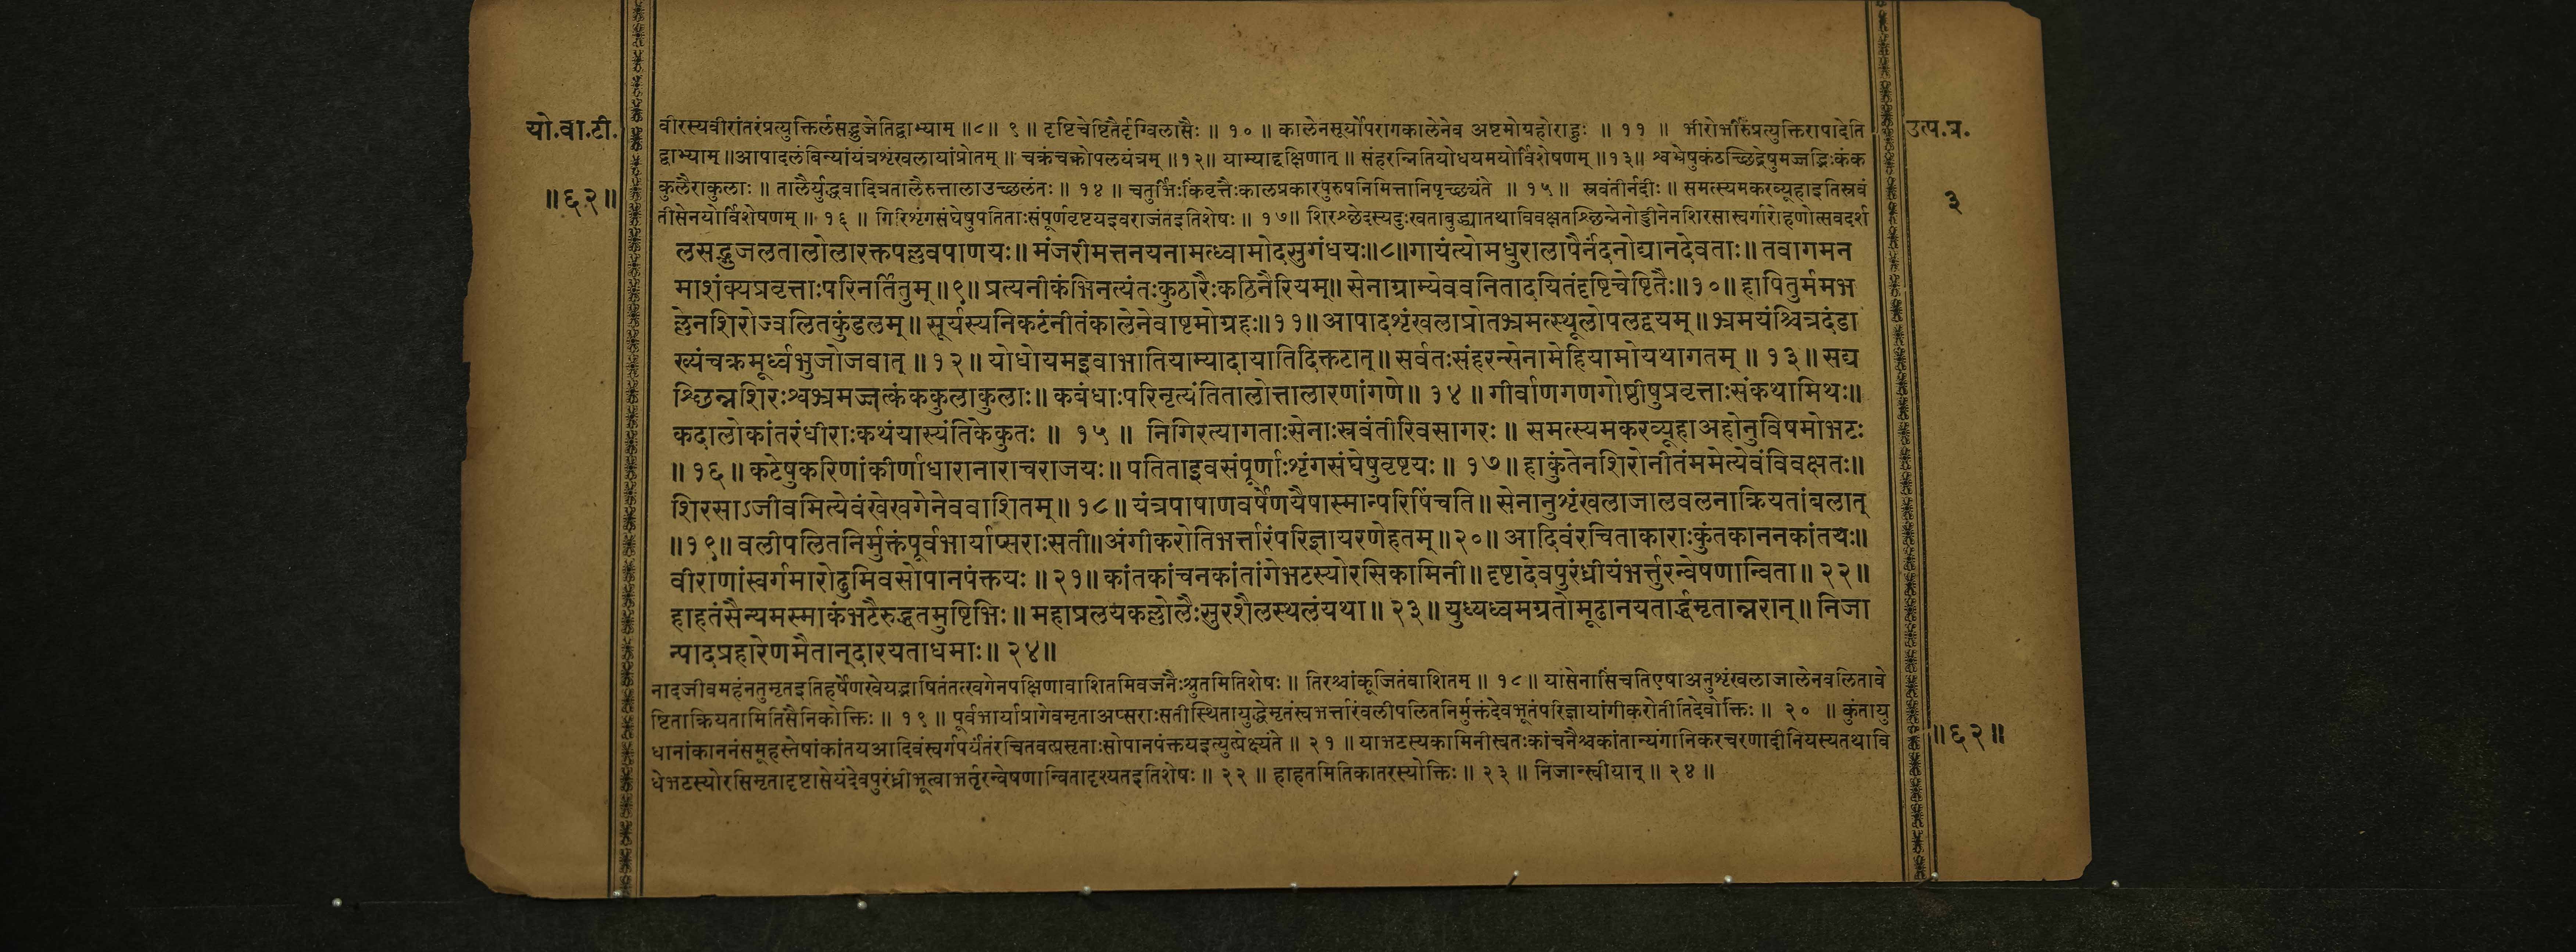 यो.वा.टी.
॥६२॥
वीरस्यवीरांतरंप्रत्युक्तिर्लसद्भुजेतिद्वाभ्याम् ॥८॥ ९ ॥ दृष्टिचेष्टितैर्दृग्विलासैः ॥ १० ॥ कालेनसूर्योपरागकालेनेव अष्टमोग्रहोराहुः ॥ ११ ॥ भीरोर्भीरुंप्रत्युक्तिरापादेति
द्वाभ्याम् ॥आपादलंबिन्यांयंत्रशृंखलायांप्रोतम् ॥ चक्रंचक्रोपलयंत्रम् ॥१२॥ याम्याद्दक्षिणात् ॥ संहरन्नितियोधयमयोर्विशेषणम् ॥१३॥ श्वभ्रेषुकंठच्छिद्रेषुमज्जद्भिःकंक
कुलैराकुलाः ॥ तालैर्युद्धवादित्रतालैरुत्तालाउच्छलंतः ॥ १४ ॥ चतुर्भिःकिंवृत्तैःकालप्रकारपुरुषनिमित्तानिपृच्छ्यंते ॥ १५ ॥ स्रवंतीर्नदीः ॥ समत्स्यमकरव्यूहाइतिस्रवं
तीसेनयोर्विशेषणम् ॥ १६ ॥ गिरिशृंगसंघेषुपतिताःसंपूर्णवृष्टयइवराजंतइतिशेषः ॥ १७॥ शिरश्छेदस्यदुःखताबुद्ध्यातथाविवक्षतश्छिन्नेनोड्डीनेनशिरसास्वर्गारोहणोत्सवदर्श
लसद्भुजलतालोलारक्तपल्लवपाणयः॥ मंजरीमत्तनयनामत्ध्वामोदसुगंधयः॥८॥गायंत्योमधुरालापैर्नंदनोद्यानदेवताः॥ तवागमन
माशंक्यप्रवृत्ताःपरिनर्तितुम् ॥९॥ प्रत्यनीकंभिनत्यंतःकुठारैःकठिनैरियम्॥ सेनाग्राम्येववनितादयितंदृष्टिचेष्टितैः॥१०॥ हापितुर्ममभ
ल्लेनशिरोज्वलितकुंडलम् ॥ सूर्यस्यनिकटंनीतंकालेनेवाष्टमोग्रहः॥११॥ आपादशृंखलाप्रोतभ्रमत्स्थूलोपलद्वयम् ॥ भ्रमयंश्चित्रदंडा
ख्यंचक्रमूर्ध्वभुजोजवात् ॥ १२॥ योधोयमइवाभातियाम्यादायातिदिक्तटात्॥ सर्वतःसंहरन्सेनामेहियामोयथागतम् ॥ १३॥ सद्य
श्छिन्नशिरःश्वभ्रमज्जत्कंककुलाकुलाः॥ कबंधाःपरिनृत्यंतितालोत्तालारणांगणे॥ १४ ॥ गीर्वाणगणगोष्ठीषुप्रवृत्ताःसंकथामिथः॥
कदालोकांतरंधीराःकथंयास्यंतिकेकुतः ॥ १५ ॥ निगिरत्यागताःसेनाःस्रवंतीरिवसागरः ॥ समत्स्यमकरव्यूहाअहोनुविषमोभटः
॥ १६ ॥ कटेषुकरिणांकीर्णाधारानाराचराजयः॥ पतिताइवसंपूर्णाःशृंगसंघेषुवृष्टयः ॥ १७॥ हाकुंतेनशिरोनीतंममेत्येवंविवक्षतः॥
शिरसाऽजीवमित्येवंखेखगेनेववाशितम्॥ १८॥ यंत्रपाषाणवर्षेणयैषास्मान्परिषिंचति॥ सेनानुशृंखलाजालवलनाक्रियतांबलात्
॥१९॥ वलीपलितनिर्मुक्तंपूर्वभार्याप्सराःसती॥अंगीकरोतिभर्त्तारंपरिज्ञायरणेहतम्॥२०॥ आदिवंरचिताकाराःकुंतकाननकांतयः॥
वीराणांस्वर्गमारोढुमिवसोपानपंक्तयः ॥ २१॥ कांतकांचनकांतांगेभटस्योरसिकामिनी॥ दृष्टादेवपुरंध्रीयंभर्त्तुरन्वेषणान्विता॥ २२॥
हाहतंसैन्यमस्माकंभटैरुद्धतमुष्टिभिः॥ महाप्रलयकल्लोलैःसुरशैलस्थलंयथा॥ २३॥ युध्यध्वमग्रतोमूढानयतार्द्धमृतान्नरान्॥ निजा
न्पादप्रहारेणमैतान्दारयताधमाः॥ २४॥
नादजीवमहंनतुमृतइतिहर्षेणखेयद्भाषितंतत्खगेनपक्षिणावाशितमिवजनैःश्रुतमितिशेषः ॥ तिरश्चांकूजितंवाशितम् ॥ १८॥ यासेनासिंचतिएषाअनुशृंखलाजालेनवलितावे
ष्टिताक्रियतामितिसैनिकोक्तिः ॥ १९ ॥ पूर्वभार्याप्रागेवमृताअप्सराःसतीस्थितायुद्धेमृतंस्वभर्त्तारंवलीपलितनिर्मुक्तंदेवभूतंपरिज्ञायांगीकरोतीतिदेवोक्तिः ॥ २० ॥ कुंतायु
धानांकाननंसमूहस्तेषांकांतयआदिवंस्वर्गपर्यंतंरचितवत्प्रसृताःसोपानपंक्तयइत्युत्प्रेक्ष्यंते ॥ २१ ॥ याभटस्यकामिनीस्वतःकांचनैश्चकांतान्यंगानिकरचरणादीनियस्यतथावि
धेभटस्योरसिमृतादृष्टासेयंदेवपुरंध्रीभूत्वाभर्तृरन्वेषणान्वितादृश्यतइतिशेषः ॥ २२ ॥ हाहतमितिकातरस्योक्तिः ॥ २३ ॥ निजान्स्वीयान् ॥ २४ ॥
उत्प.प्र.
३
॥६२॥